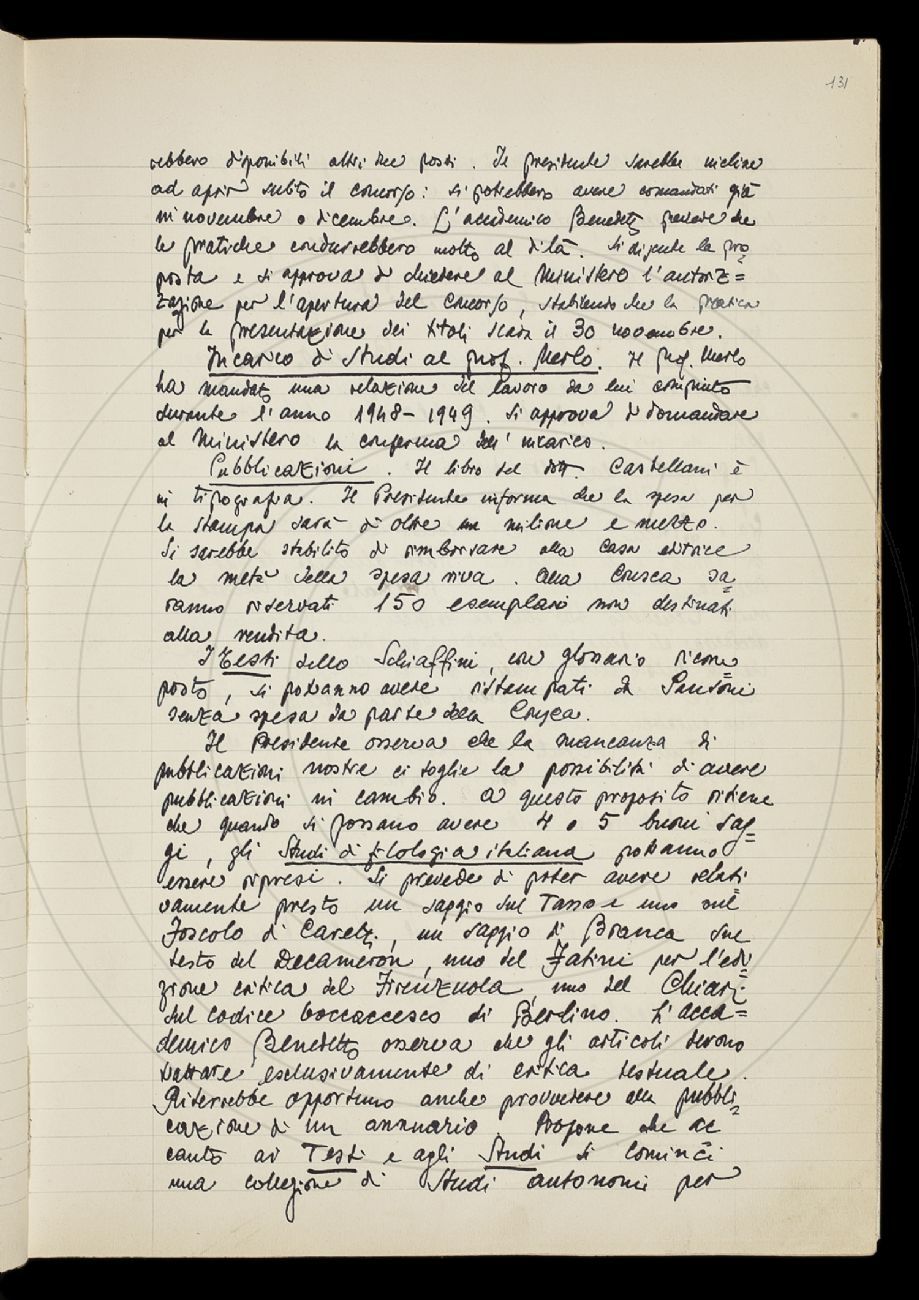 131
rebbero disponibili altri due posti. Il presidente sarebbe incline
ad aprir subito il concorso: si potrebbero avere comandati già
in novembre o dicembre. L'accademico Benedetto prevede che
le pratiche condurrebbero molto al di là. Si discute la pro=
posta e si approva di chiedere al Ministero l'autoriz=
zazione per l'apertura del concorso, stabilendo che la pratica
per la presentazione dei titoli scada il 30 novembre.
Incarico di Studi al prof. Merlo. Il prof. Merlo
ha mandato una relazione del lavoro da lui compiuto
durante l'anno 1948-1949. Si approva di domandare
al Ministero la conferma dell'incarico.
Pubblicazioni. Il libro del dott. Castellani è
in tipografia. Il Presidente informa che la spesa per
la stampa sarà di oltre un milione e mezzo.
Si sarebbe stabilito di rimborsare alla Casa editrice
la metà della spesa viva. Alla Crusca sa=
ranno riservati 150 esemplari non destinati
alla vendita.
I Testi dello Schiaffini, con glossario ricom=
posto, si potranno avere ristampati da Sansoni
senza spesa da parte della Crusca.
Il Presidente osserva che la mancanza di
pubblicazioni nostre ci toglie la possibilità di avere
pubblicazioni in cambio. A questo proposito ritiene
che quando si possano avere 4 o 5 buoni sag=
gi, gli Studi di filologia italiana potranno
essere ripresi. Si prevede di poter avere relati=
vamente presto un saggio sul Tasso e uno sul
Foscolo di Caretti, un saggio di Branca sul
testo del Decameron, uno del Fatini per l'edi=
zione critica del Firenzuola, uno del Chiari
sul codice boccaccesco di Berlino. L'acca=
demico Benedetto osserva che gli articoli devono
trattare esclusivamente di critica testuale.
Riterrebbe opportuno anche provvedere alla pubbli=
cazione di un annuario. Propone che ac
canto ai Testi e agli Studi si cominci
una collezione di Studi autonomi per